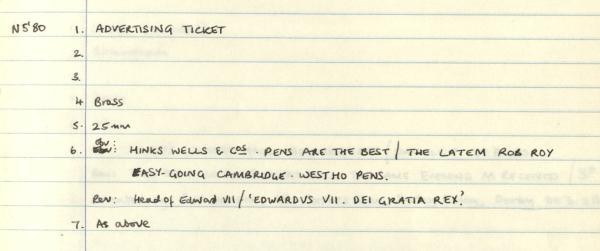 N5'80 1. ADVERTISING TICKET
2.
3.
4 Brass
5. 25mm
6. Obv: HINKS WELLS & COS. PENS ARE THE BEST / THE LATEM ROB ROY
EASY-GOING CAMBRIDGE. WESTHO PENS.
Rev: Head of Edward VII / 'EDWARDVS VII. DEI GRATIA REX'.
7. As above